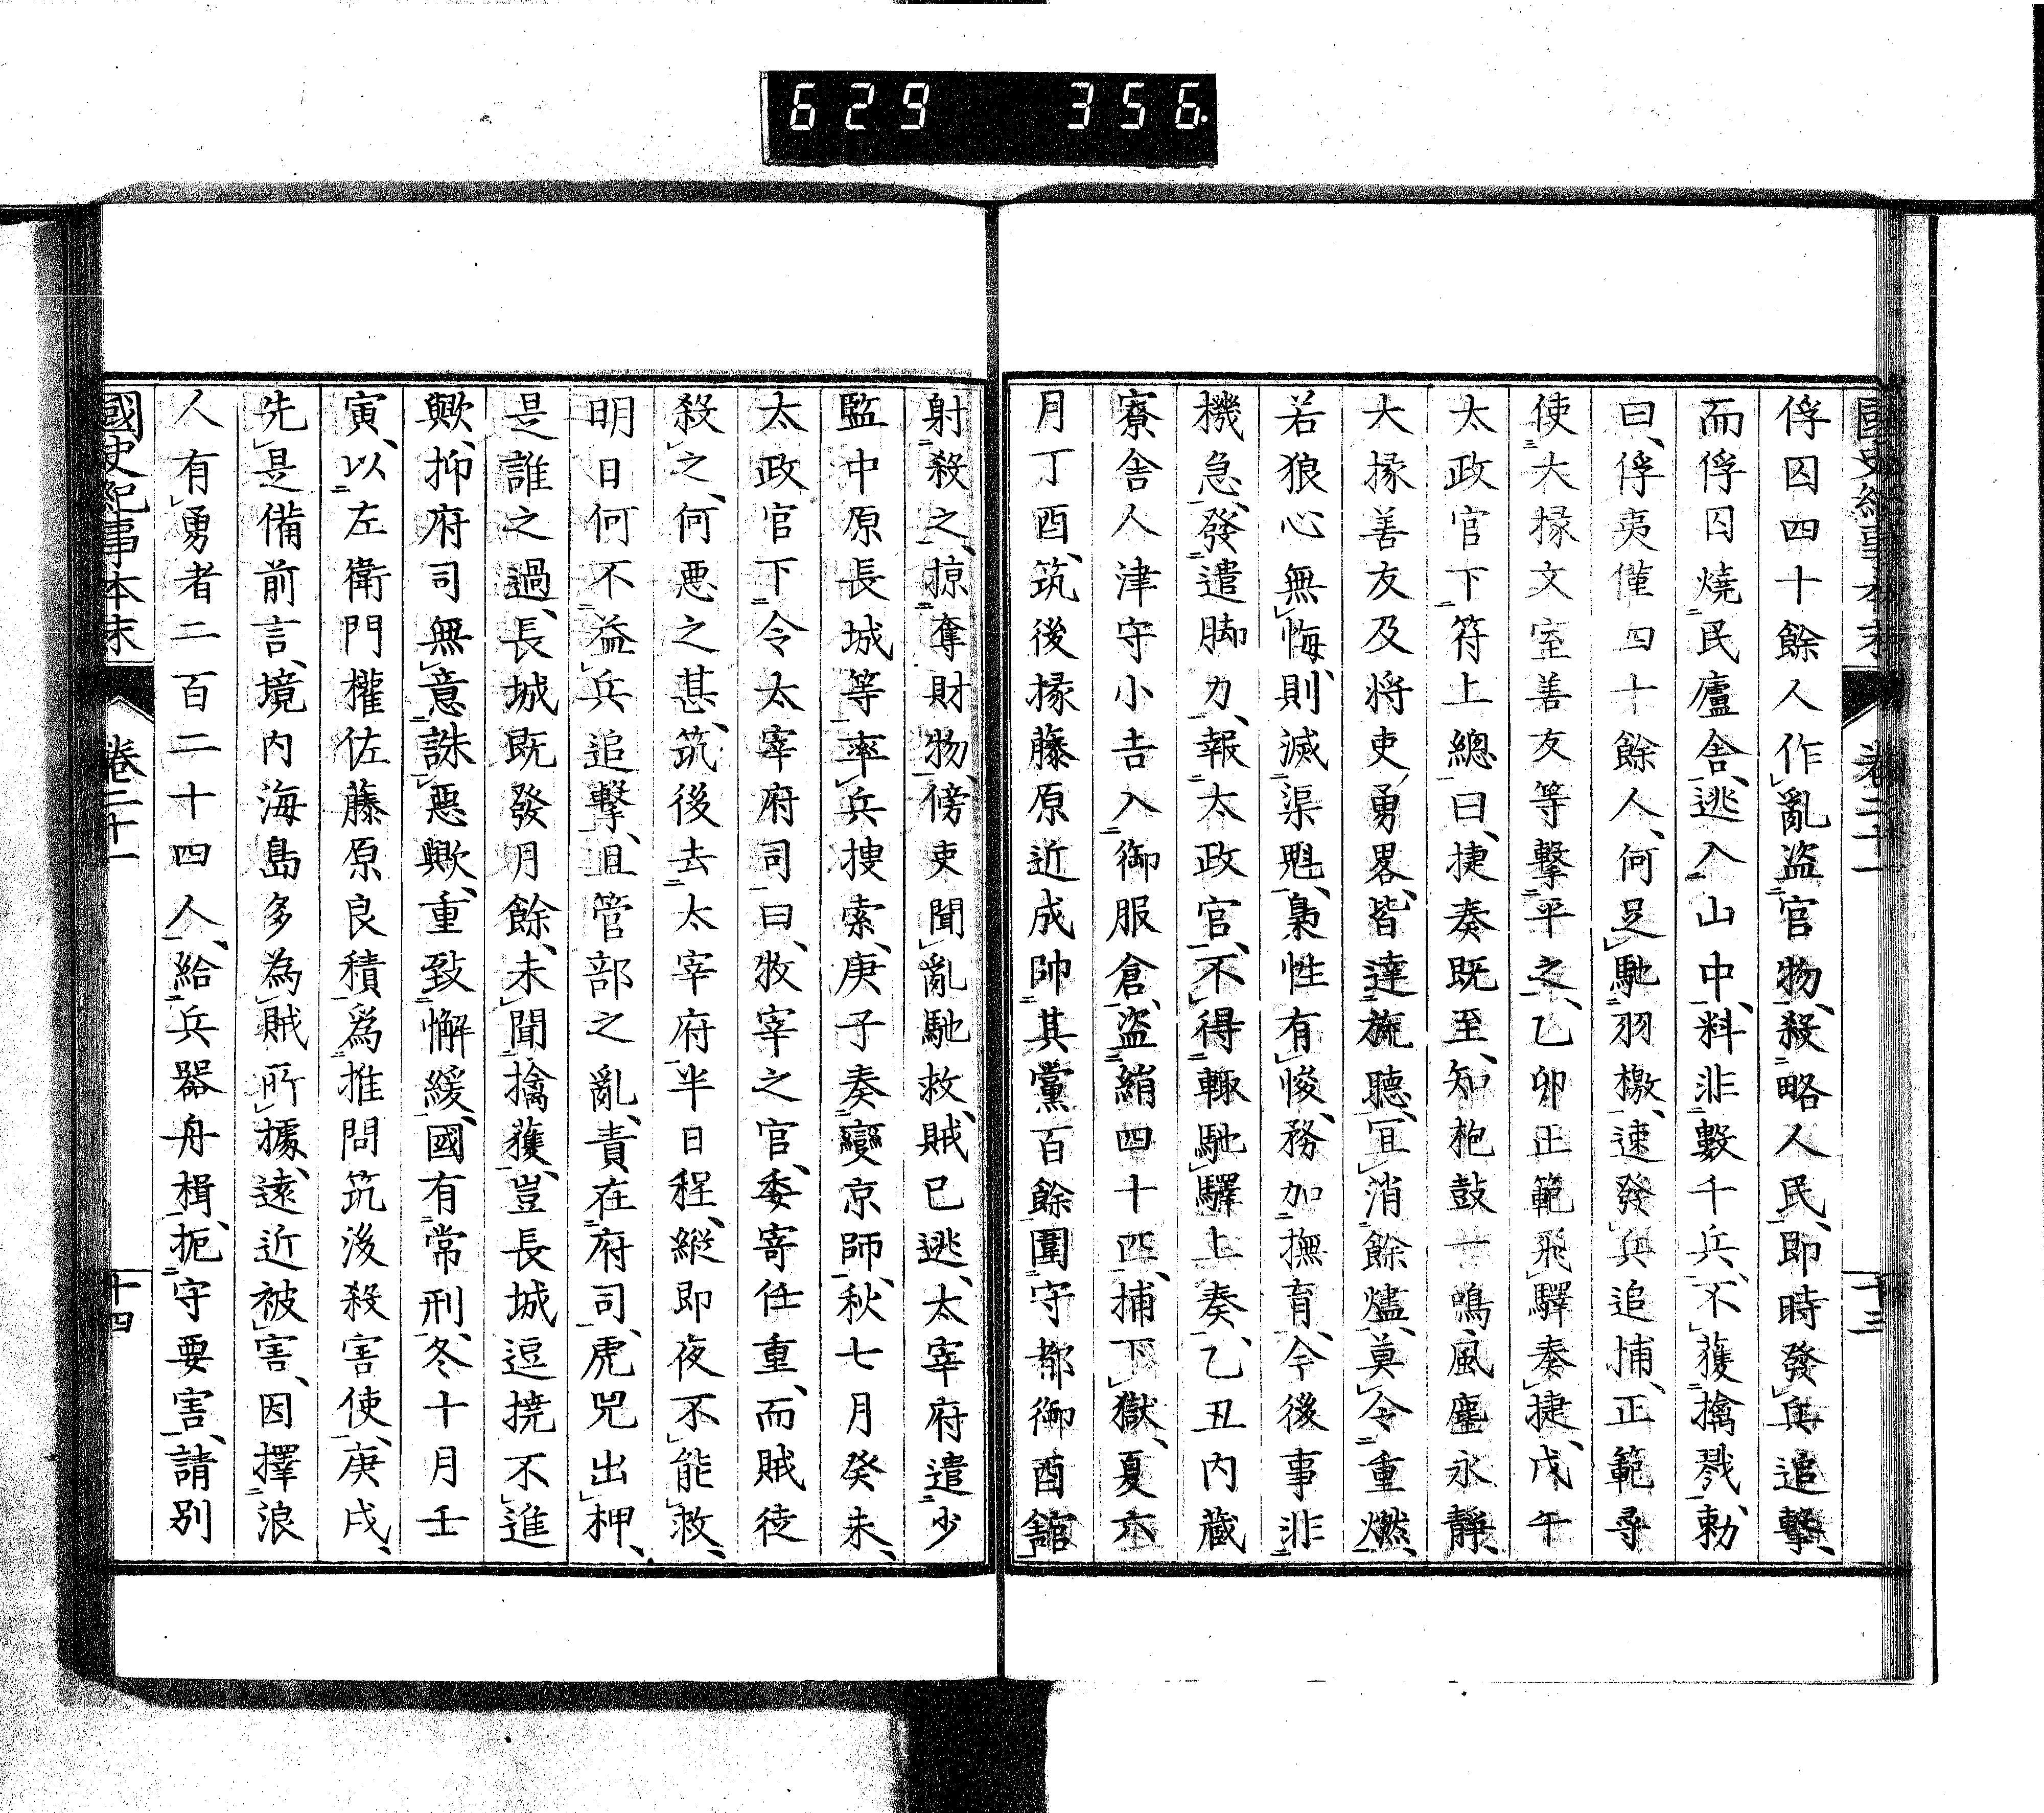 629 356.
國史紀事本末 卷二十一 十三
俘囚四十餘人作亂盜官物、殺略人民、即時發兵追擊、
而俘囚燒民廬舍、逃入山中、料非數千兵、不獲擒戮、勅
曰、俘夷僅四十餘人、何足馳羽檄、速發兵追捕、正範尋
使大掾文室善友等擊平之、乙卯正範飛驛奏捷、戊午
太政官下符上總曰、捷奏既至、知枹鼓一鳴、風塵永靜、
大掾善友及將吏勇畧、皆達旒聽、宜消餘燼、莫令重燃、
若狼心無悔、則滅渠魁、梟性有悛、務加撫育、今後事非
機急、發遣脚力、報太政官、不得輙馳驛上奏、乙丑內藏
寮舍人津守小吉入御服倉、盜絹四十四、捕下獄、夏六
月丁酉、筑後掾藤原近成帥其黨百餘圍守都御酉舘
射殺之、掠奪財物、傍吏聞亂馳救、賊已逃、太宰府遣少
監中原長城等率兵搜索、庚子奏變京師、秋七月癸未、
太政官下令太宰府司曰、牧宰之官、委寄任重、而賊徒
殺之、何悪之甚、筑後去太宰府半日程、縱即夜不能救、
明日何不益兵追擊、且管部之亂、責在府司、虎兕出柙、
是誰之過、長城既發月餘、未聞擒獲、豈長城逗撓不進
歟、抑府司無意誅悪歟、重致懈緩、國有常刑、冬十月壬
寅、以左衛門權佐藤原良積爲推問筑後殺害使、庚戌、
先是備前言、境內海島多為賊所據、遠近被害、因擇浪
人有勇者二百二十四人、給兵器舟楫、扼守要害、請別
國史紀事本末 卷二十一 十四